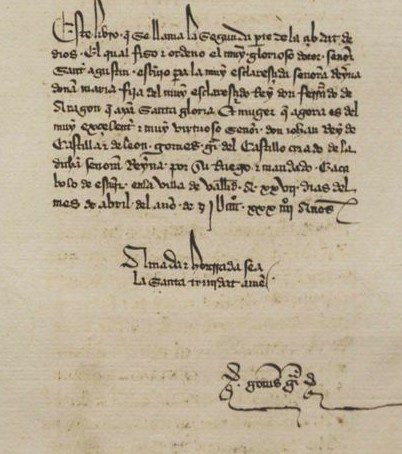 Este libro q se llama la segunda pte de la çibdat de
dios. El qual fizo ⁊ ordeno el muy glorioso dotor señor
Sant agustin. escriuio pa la muy esclaresçida señora Reyna
doña maria fija del muy esclaresçido Rey don ferrñdo de
Aragon q aya santa gloria Et muger q agora es del
muy excelent ⁊ muy virtuoso señor. don iohan Rey de
Castilla ⁊ de leon. gomes gr̃s del Castillo criado de la
dicha señora Reyna. por su Ruego ⁊ mandado. Et aca
bolo de escreuir. en la villa de vallid. a xxvij dias del
mes de abril. del año de xxx iiij Años
Amada ⁊ loada sea
la santa trinidat amẽ
gomes gr̃s